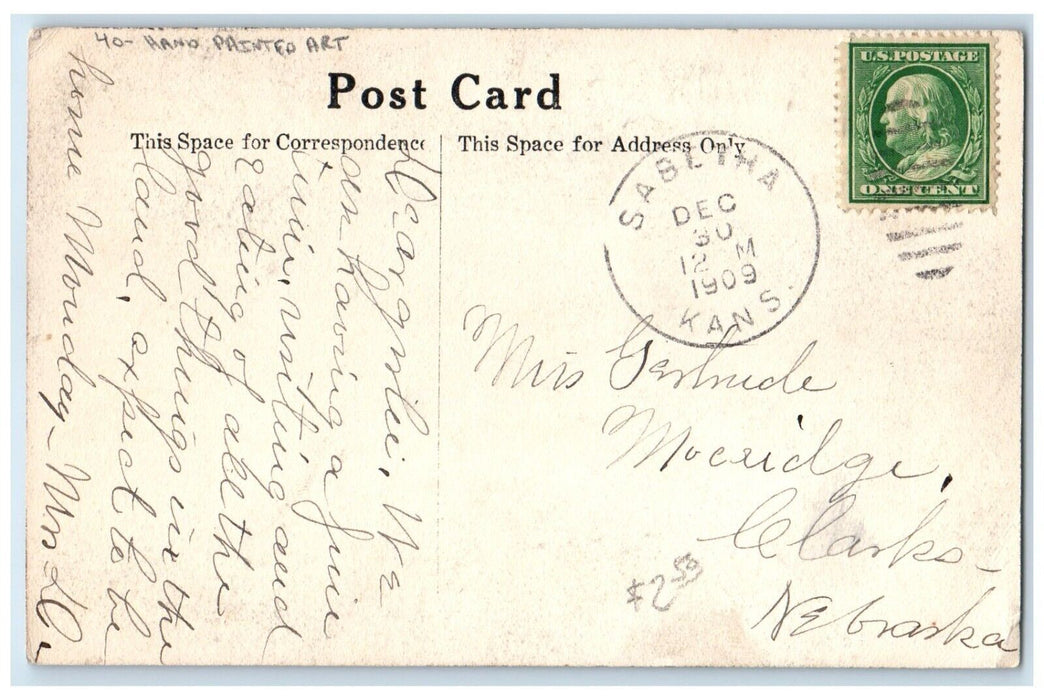 40- HAND PAINTED ART
Post Card
This Space for Correspondence
This Space for Address Only
U.S. POSTAGE
ONE CENT
SABETHA
DEC
30
12 M
1909
KANS.
Miss Gertrude
Mocridge,
Clarks -
Nebraska
$2
We
are having a fine
time, visiting and
eating of all the
good things in the
land, expect to be
home Monday - Mrs. D.